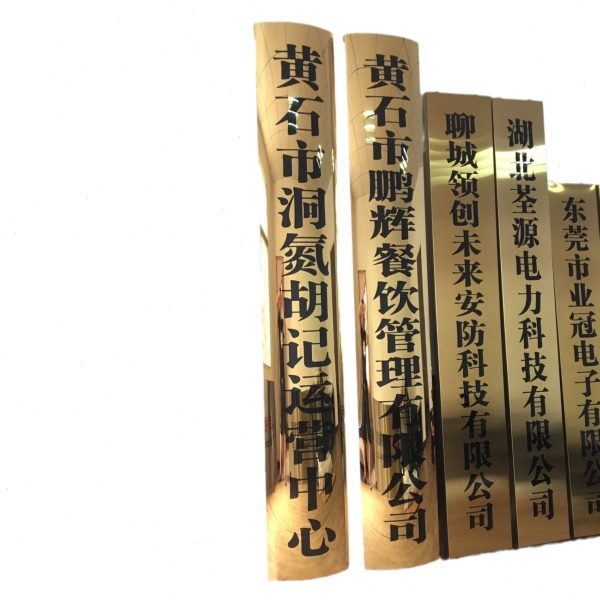 黄石市洞氮胡记运营中心
黄石市鹏辉餐饮管理有限公司
聊城领创未来安防科技有限公司
湖北荃源电力科技有限公司
东莞市业冠电子有限公